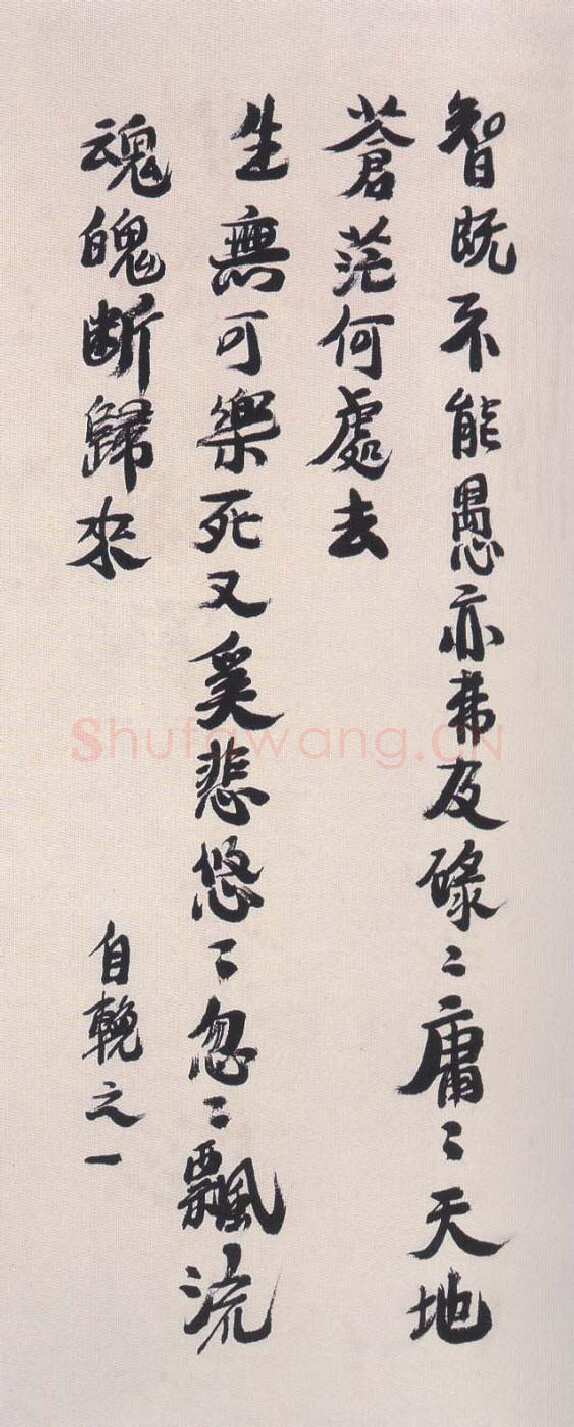 智既不能愚亦弗及碌〻庸〻天地
蒼茫何處去
生無可樂死又奚悲悠〻忽〻飄流
魂魄斷歸來
自輓之一
Shufawang.CN